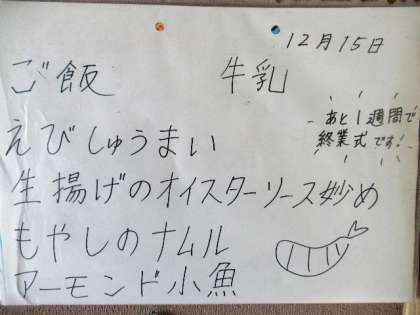 12月15日
ご飯 牛乳
あと1週間で
終業式です!
えびしゅうまい
生揚げのオイスターソース炒め
もやしのナムル
アーモンド小魚